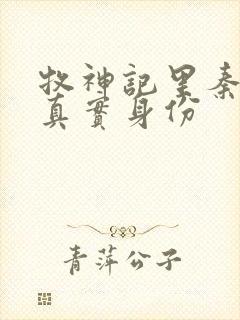 牧神記里秦
真實身份
青萍公子